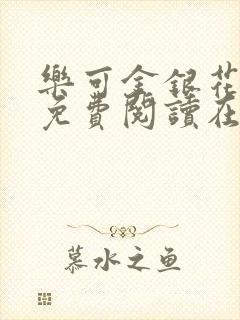 樂可金銀花
免費閱讀在
慕水之鱼